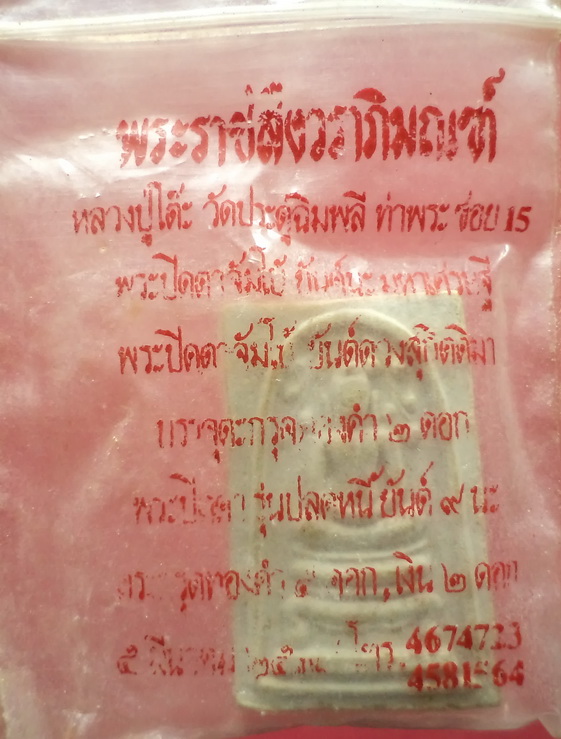 พระราชสังวราภิมณฑ์
หลวงปู่โต๊ะ วัดประดู่ฉิมพลี ท่าพระ ซอย 15
พระปิดตาจัมโบ้ ยันต์นะมหาเศรษฐี
พระปิดตาจัมโบ้ ยันต์ดวงสุกิตติมา
บรรจุตะกรุดทองคำ ๒ ดอก
พระปิดตา รุ่นปลดหนี้ ยันต์ ๙ นะ
ดอก, เงิน ๒ ดอก
๕ มีนาคม โทร. 4674723
4581564